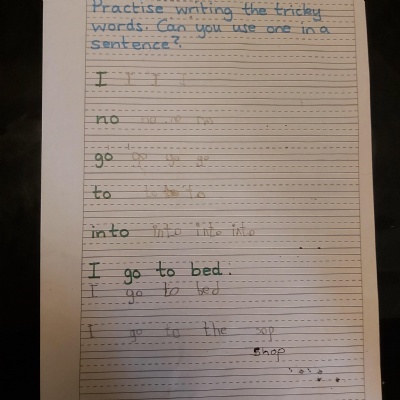 Practise writing the tricky
words. Can you use one in a
sentence?
I I I I
no no no no
go go go go
to to to to
into into into into
I go to bed.
I go to bed
I go to the sop
shop